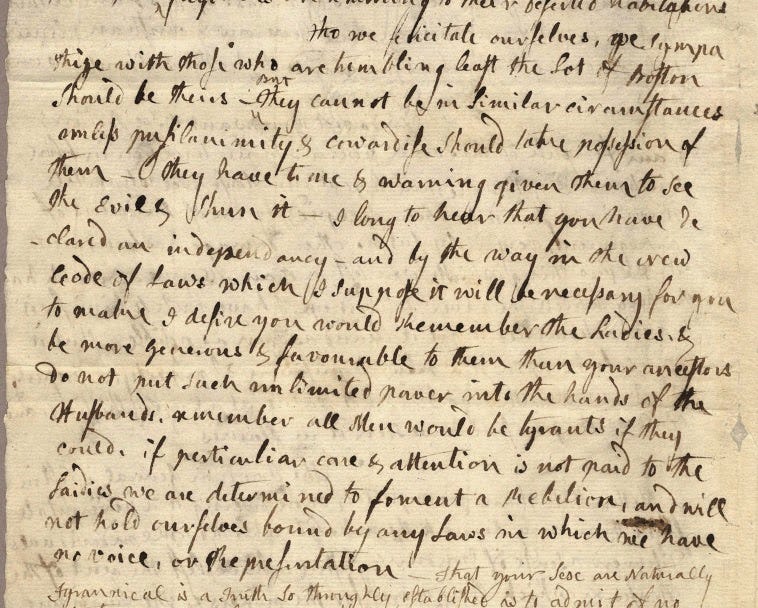 to their deserted habitations
Tho we felicitate ourselves, we sympa
thize with those who are trembling least the Lot of Boston
should be theirs — But they cannot be in similar circumstances
unless pusilanimity & cowardise should take possession of
them — They have time & warning given them to see
the Evil & shun it — I long to hear that you have de
clared an independancy — and by the way in the new
Code of Laws which I suppose it will be necessary for you
to make I desire you would Remember the Ladies, &
be more generous & favourable to them than your ancestors
do not put such unlimited power into the hands of the
Husbands. remember all Men would be tyrants if they
could. if perticuliar care & attention is not paid to the
Laidies we are determined to foment a Rebelion, and will
not hold ourselves bound by any Laws in which we have
no voice, or Representation — That your Sex are Naturally
Tyrannical is a Truth so throughly established as to admit of no